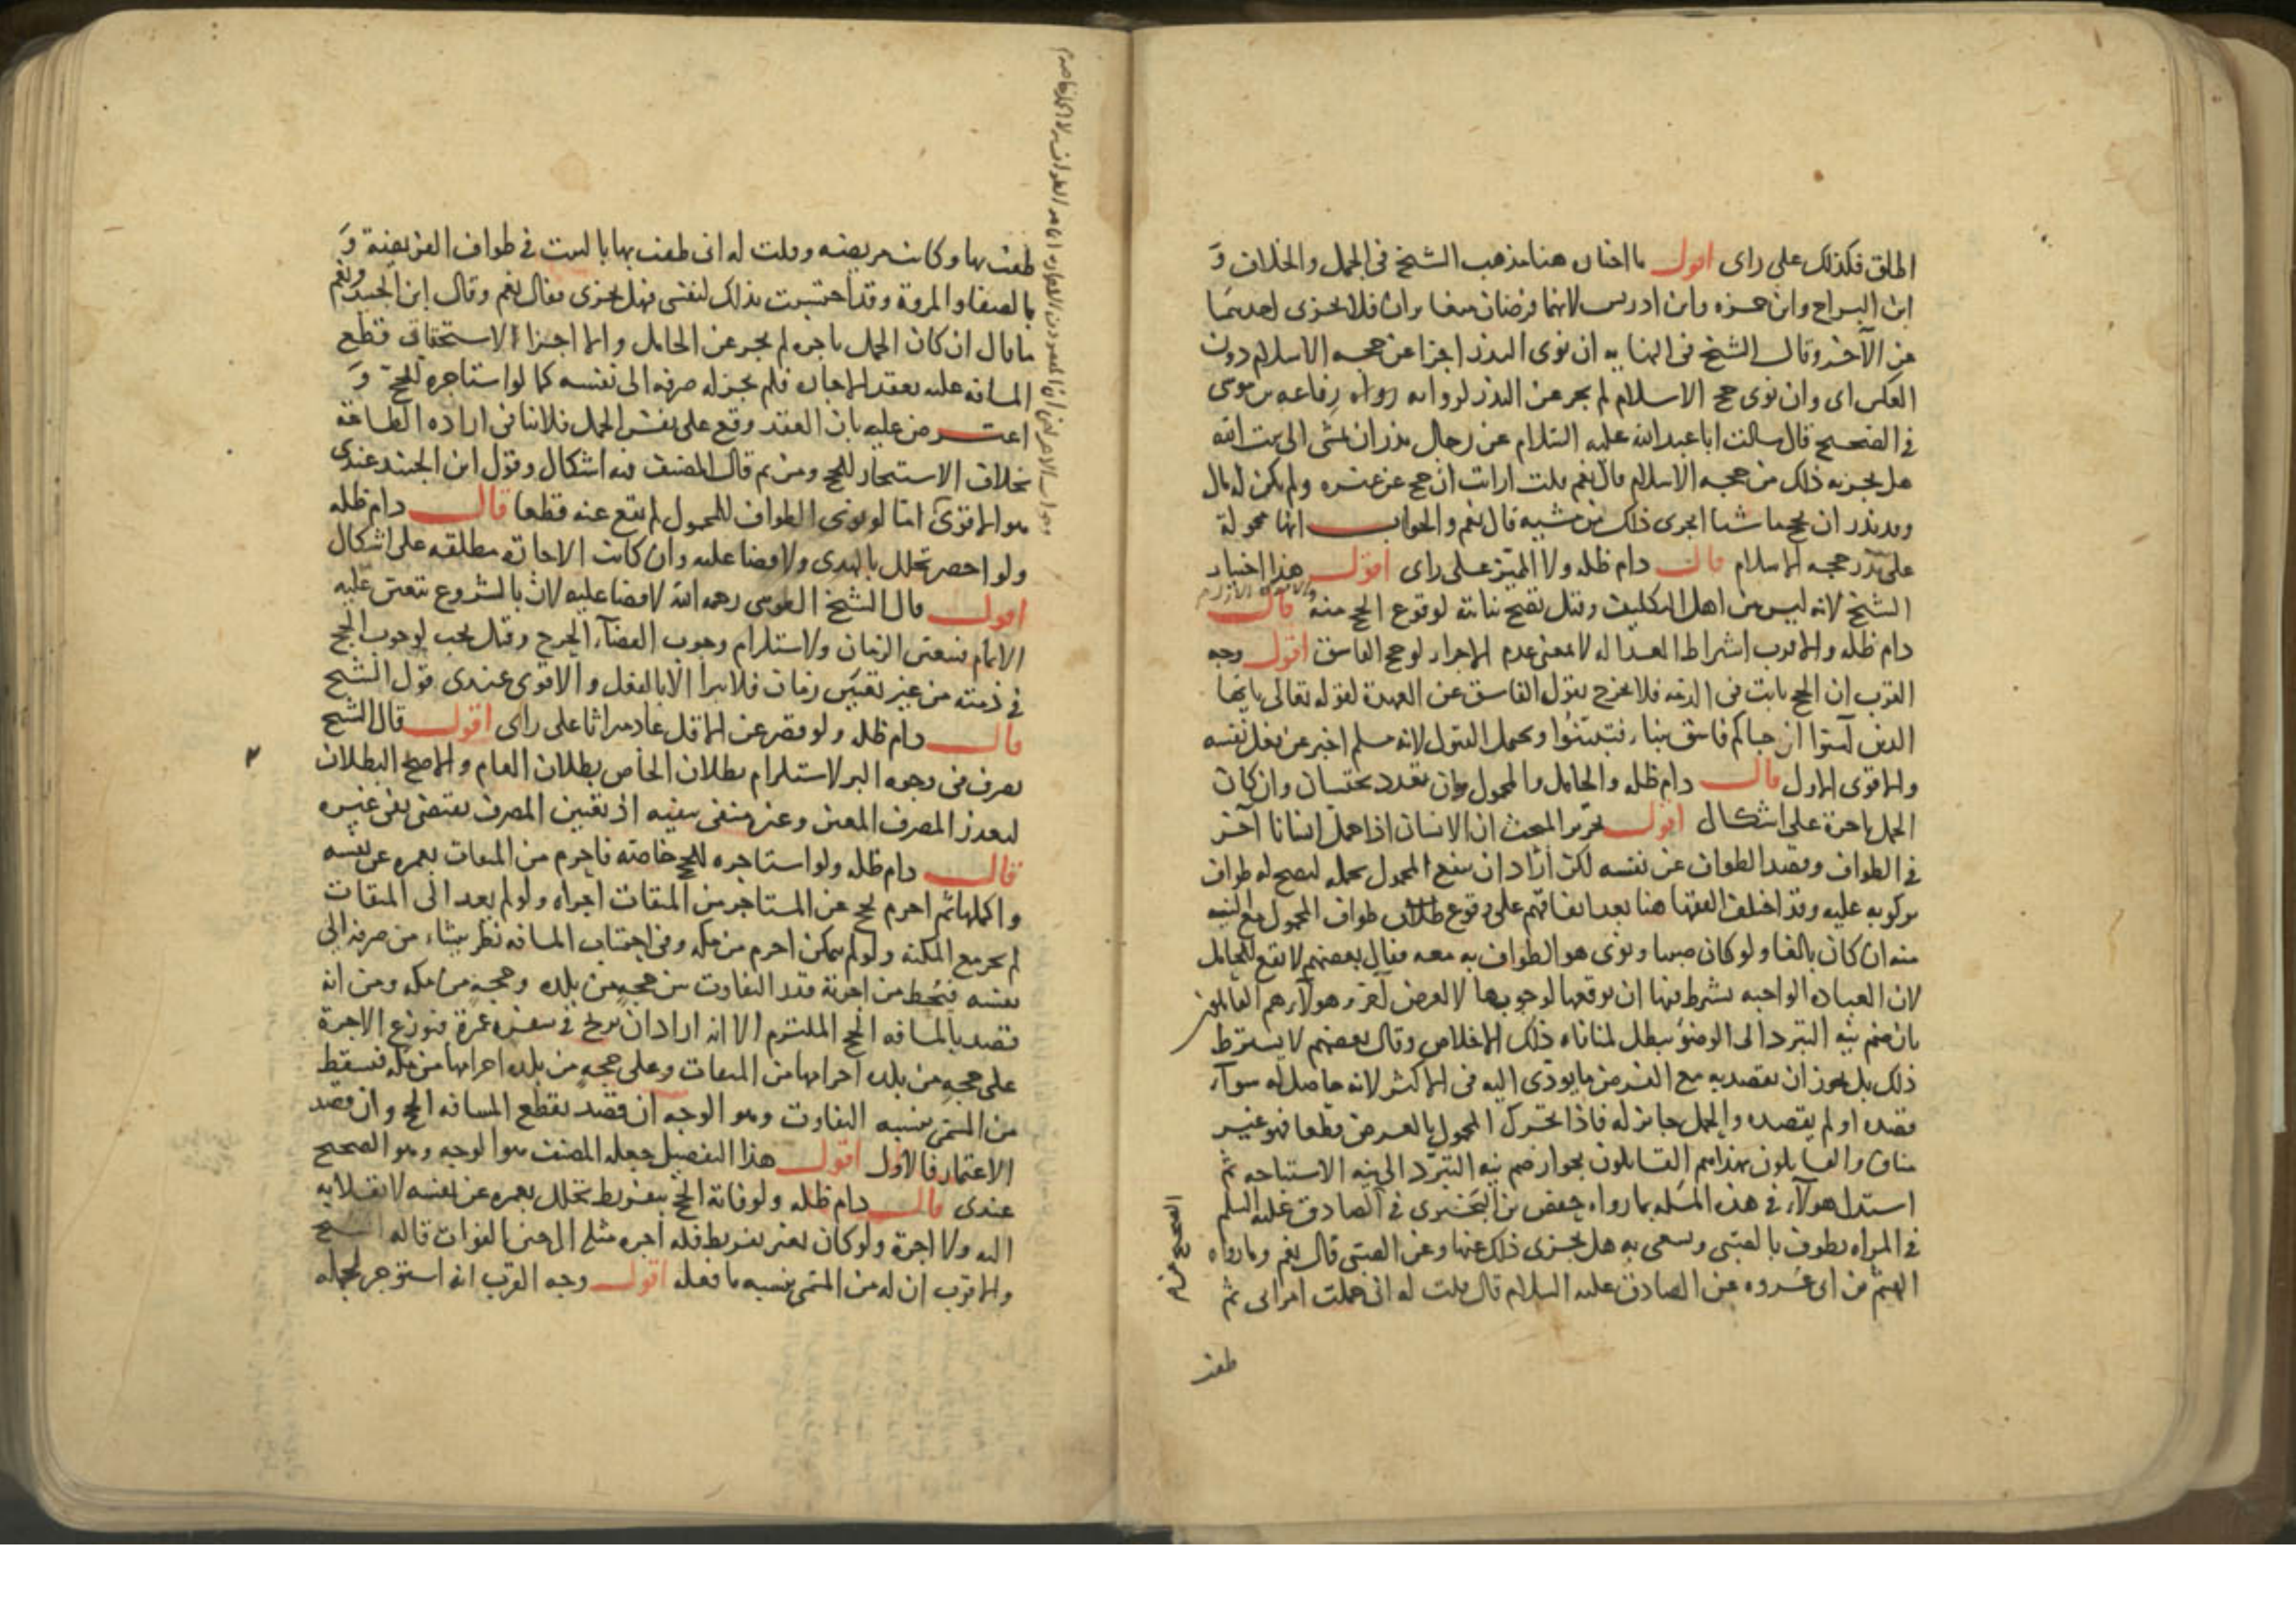 اطلق فكذلك على راى اقول ما اختاره هنا مذهب الشيخ فى الجمل والخلاف و
ابن البراج وابن حمزه وابن ادريس لانهما فرضان متغايران فلا يجزى احدهما
عن الآخر وقال الشيخ فى النهايه ان نوى النذر اجزا عن حجه الاسلام دون
العكس اى وان نوى حج الاسلام لم يجز عن النذر لروايه رواه رفاعه بن موسى
فى الصحيح قال سالت ابا عبدالله عليه السلام عن رجل نذر ان يمشى الى بيت الله
هل يجزيه ذلك من حجه الاسلام قال نعم قلت ارايت ان حج عن غيره ولم يكن له مال
وقد نذر ان يحج ماشيا ايجزى ذلك من مشيه قال نعم والجواب انها محمولة
على نذر حجه الاسلام قال دام ظله ولا المميز على راى اقول هذا اختيار
الشيخ لانه ليس من اهل التكليف وقيل تصح نيابته لوقوع الحج منه قال
دام ظله والاقرب اشتراط العداله لا بمعنى عدم الاجزا لو حج الفاسق اقول وجه
القرب ان الحج ثابت فى الذمه فلا يخرج بقول الفاسق عن العهدة لقوله تعالى يا يها
الذين آمنوا ان جاكم فاسق بنباء فتبينوا ويحتمل القبول لانه مسلم اخبر عن فعل نفسه
والاقوى الاول قال دام ظله والحامل والمحمول وان تعدد يحتسبان وان كان
الحمل باجرة على اشكال اقول تحرير المبحث ان الانسان اذا حمل انسانا آخر
فى الطواف وقصد الطواف عن نفسه لكن اراد ان ينفع المحمول بحمله ليصح له طواف
بركوبه عليه وقد اختلف الفقها هنا بعد اتفاقهم على وقوع طواف المحمول مع النيه
منه ان كان بالغا ولو كان صبيا ونوى هو الطواف به معه فقال بعضهم لا يقع للحامل
لان العباده الواجبه يشترط فيها ان يوقعها لوجوبها لا لغرض آخر وهولاء هم القايلون
بان ضم نيه التبرد الى الوضوء يبطل لمنافاه ذلك الاخلاص وقال بعضهم لا يشترط
ذلك بل يجوز ان يقصد به مع الفرض ما يودى اليه فى الاكثر لانه حاصل له سواء
قصده او لم يقصده والحمل جايز له فاذا تحرك المحمول بالعرض قطعا فهو غير
مناف والقايلون بهذا هم القايلون بجواز ضم نيه التبرد الى نيه الاستباحه ثم
استدل هولاء فى هذه المسله بما رواه حفص بن البخترى فى الصادق عليه السلم
فى المراه تطوف بالصبى وتسعى به هل يجزى ذلك عنها وعن الصبى قال نعم وما رواه
الهيثم بن ابى عروه عن الصادق عليه السلام قال قلت له انى حملت امراتى ثم
طفت
طفت بها وكانت مريضه وقلت له انى طفت بها بالبيت فى طواف الفريضة و
بالصفا والمروة وقد احتسبت بذلك لنفسى فهل يجزى فقال نعم وقال ابن الجنيد ونعم
ما قال ان كان الحمل باجره لم يجز عن الحامل والا اجزا لاستحقاق قطع
المسافه عليه بعقد الاجاره فلم يجز له صرفه الى نفسه كما لو استاجره للحج و
اعترض عليه بان العقد وقع على نفس الحمل فلا ينافى اراده الطاعة
بخلاف الاستيجار للحج ومن ثم قال المصنف فيه اشكال وقول ابن الجنيد عندى
هو الاقوى امّا لو نوى الطواف للمحمول لم يقع عنه قطعا قال دام ظله
ولو احصر تحلل بالهدى ولا قضا عليه وان كانت الاجارة مطلقه على اشكال
اقول قال الشيخ الطوسى رحمه الله لا قضا عليه لان بالشروع يتعين عليه
الاتمام فيتعين الزمان ولاستلزام وجوب القضاء الحرج وقيل يجب لوجوب الحج
فى ذمته من غير تعيين زمان فلا يبرا الا بالفعل والاقوى عندى قول الشيخ
قال دام ظله ولو قصر عن الاقل عاد ميراثا على راى اقول قال الشيخ
يصرف فى وجوه البر لاستلزام بطلان الخاص بطلان العام والاصح البطلان
لتعذر المصرف المعين وغيره منفى بنفيه اذ تعيين المصرف يقتضى نفى غيره
قال دام ظله ولو استاجره للحج خاصه فاحرم من الميقات بعمره عن نفسه
واكملها ثم احرم بحج عن المستاجر من الميقات اجزاه ولو لم يعد الى الميقات
لم يجز مع المكنة ولو لم يتمكن احرم من مكه وفى احتساب المسافه نظر ينشاء من صرفه الى
نفسه فيُحط من اجرته قدر التفاوت بين حجه من بلده وحجه من مكه ومن انه
قصد بالمسافه الحج الملتزم الا انه اراد ان يربح فى سفره عمرة فتوزع الاجرة
على حجه من بلده احرامها من الميقات وعلى حجه من بلده احرامها من مكه فيسقط
من المسمى بنسبه التفاوت وهو الوجه ان قصد بقطع المسافه الحج وان قصد
الاعتمار فالاول اقول هذا التفصيل جعله المصنف هو الوجه وهو الصحيح
عندى قال دام ظله ولو فاته الحج بتفريط تحلل بعمره عن نفسه لانقلابه
اليه ولا اجرة ولو كان بغير تفريط فله اجره مثله الى حين الفوات قاله الشيخ
والاقرب ان له من المسمى بنسبه ما فعله اقول وجه القرب انه استوجر لجمله